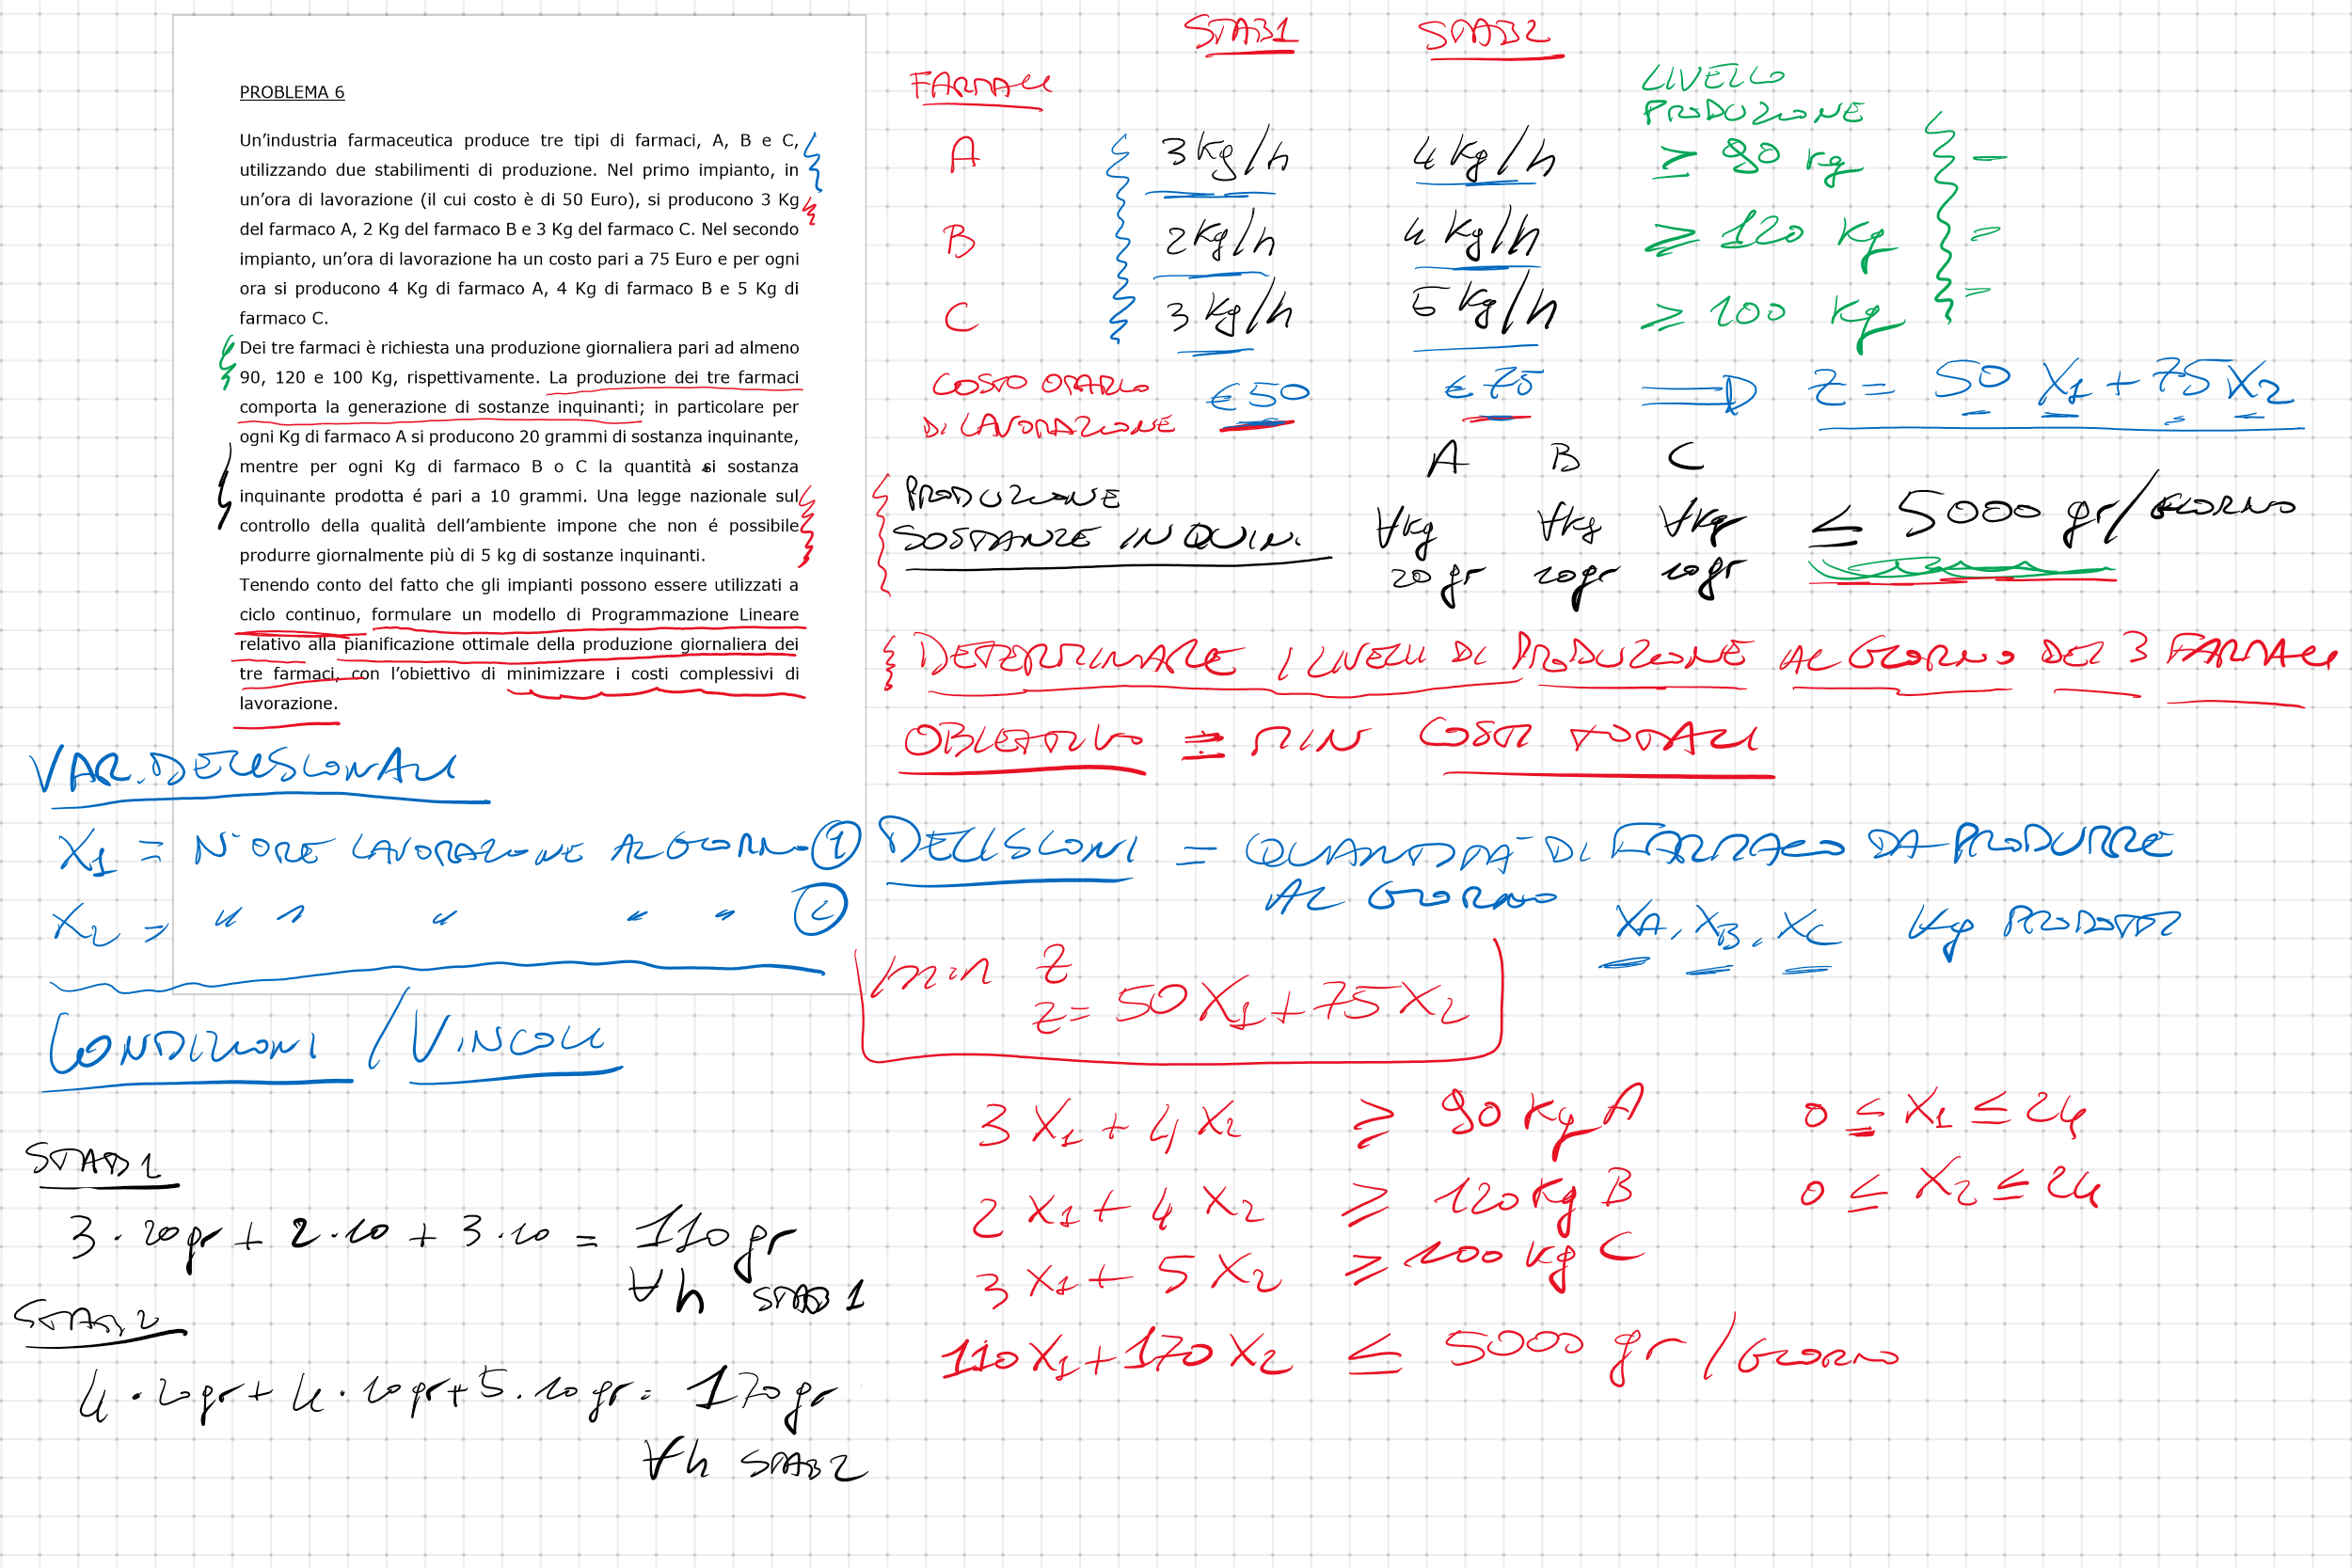 PROBLEMA 6
Un’industria farmaceutica produce tre tipi di farmaci, A, B e C,
utilizzando due stabilimenti di produzione. Nel primo impianto, in
un’ora di lavorazione (il cui costo è di 50 Euro), si producono 3 Kg
del farmaco A, 2 Kg del farmaco B e 3 Kg del farmaco C. Nel secondo
impianto, un’ora di lavorazione ha un costo pari a 75 Euro e per ogni
ora si producono 4 Kg di farmaco A, 4 Kg di farmaco B e 5 Kg di
farmaco C.
Dei tre farmaci è richiesta una produzione giornaliera pari ad almeno
90, 120 e 100 Kg, rispettivamente. La produzione dei tre farmaci
comporta la generazione di sostanze inquinanti; in particolare per
ogni Kg di farmaco A si producono 20 grammi di sostanza inquinante,
mentre per ogni Kg di farmaco B o C la quantità si sostanza
inquinante prodotta é pari a 10 grammi. Una legge nazionale sul
controllo della qualità dell’ambiente impone che non é possibile
produrre giornalmente più di 5 kg di sostanze inquinanti.
Tenendo conto del fatto che gli impianti possono essere utilizzati a
ciclo continuo, formulare un modello di Programmazione Lineare
relativo alla pianificazione ottimale della produzione giornaliera dei
tre farmaci, con l’obiettivo di minimizzare i costi complessivi di
lavorazione.
STAB1 STAB2
FARMACI LIVELLO
PRODUZIONE
A 3 Kg/h 4 Kg/h ≥ 90 Kg
B 2 Kg/h 4 Kg/h ≥ 120 Kg
C 3 Kg/h 5 Kg/h ≥ 100 Kg
COSTO ORARIO
DI LAVORAZIONE € 50 € 75 ⇒ Z = 50 X1 + 75 X2
A B C
PRODUZIONE
SOSTANZE INQUIN. ∀kg ∀kg ∀kg ≤ 5000 gr/GIORNO
20 gr 10gr 10gr
DETERMINARE I LIVELLI DI PRODUZIONE AL GIORNO DEI 3 FARMACI
OBIETTIVO = MIN COSTI TOTALI
VAR. DECISIONALI
X1 = N° ORE LAVORAZIONE AL GIORNO 1
X2 = " " " " " 2
DECISIONI = QUANTITÀ DI FARMACO DA PRODURRE
AL GIORNO
XA, XB, XC Kg PRODOTTI
min Z
Z = 50 X1 + 75 X2
CONDIZIONI / VINCOLI
3 X1 + 4 X2 ≥ 90 Kg A 0 ≤ X1 ≤ 24
2 X1 + 4 X2 ≥ 120 Kg B 0 ≤ X2 ≤ 24
3 X1 + 5 X2 ≥ 100 Kg C
110 X1 + 170 X2 ≤ 5000 gr / GIORNO
STAB1
3 · 20gr + 2 · 10 + 3 · 10 = 110 gr
∀h STAB 1
STAB2
4 · 20gr + 4 · 10gr + 5 · 10 gr = 170 gr
∀h STAB2